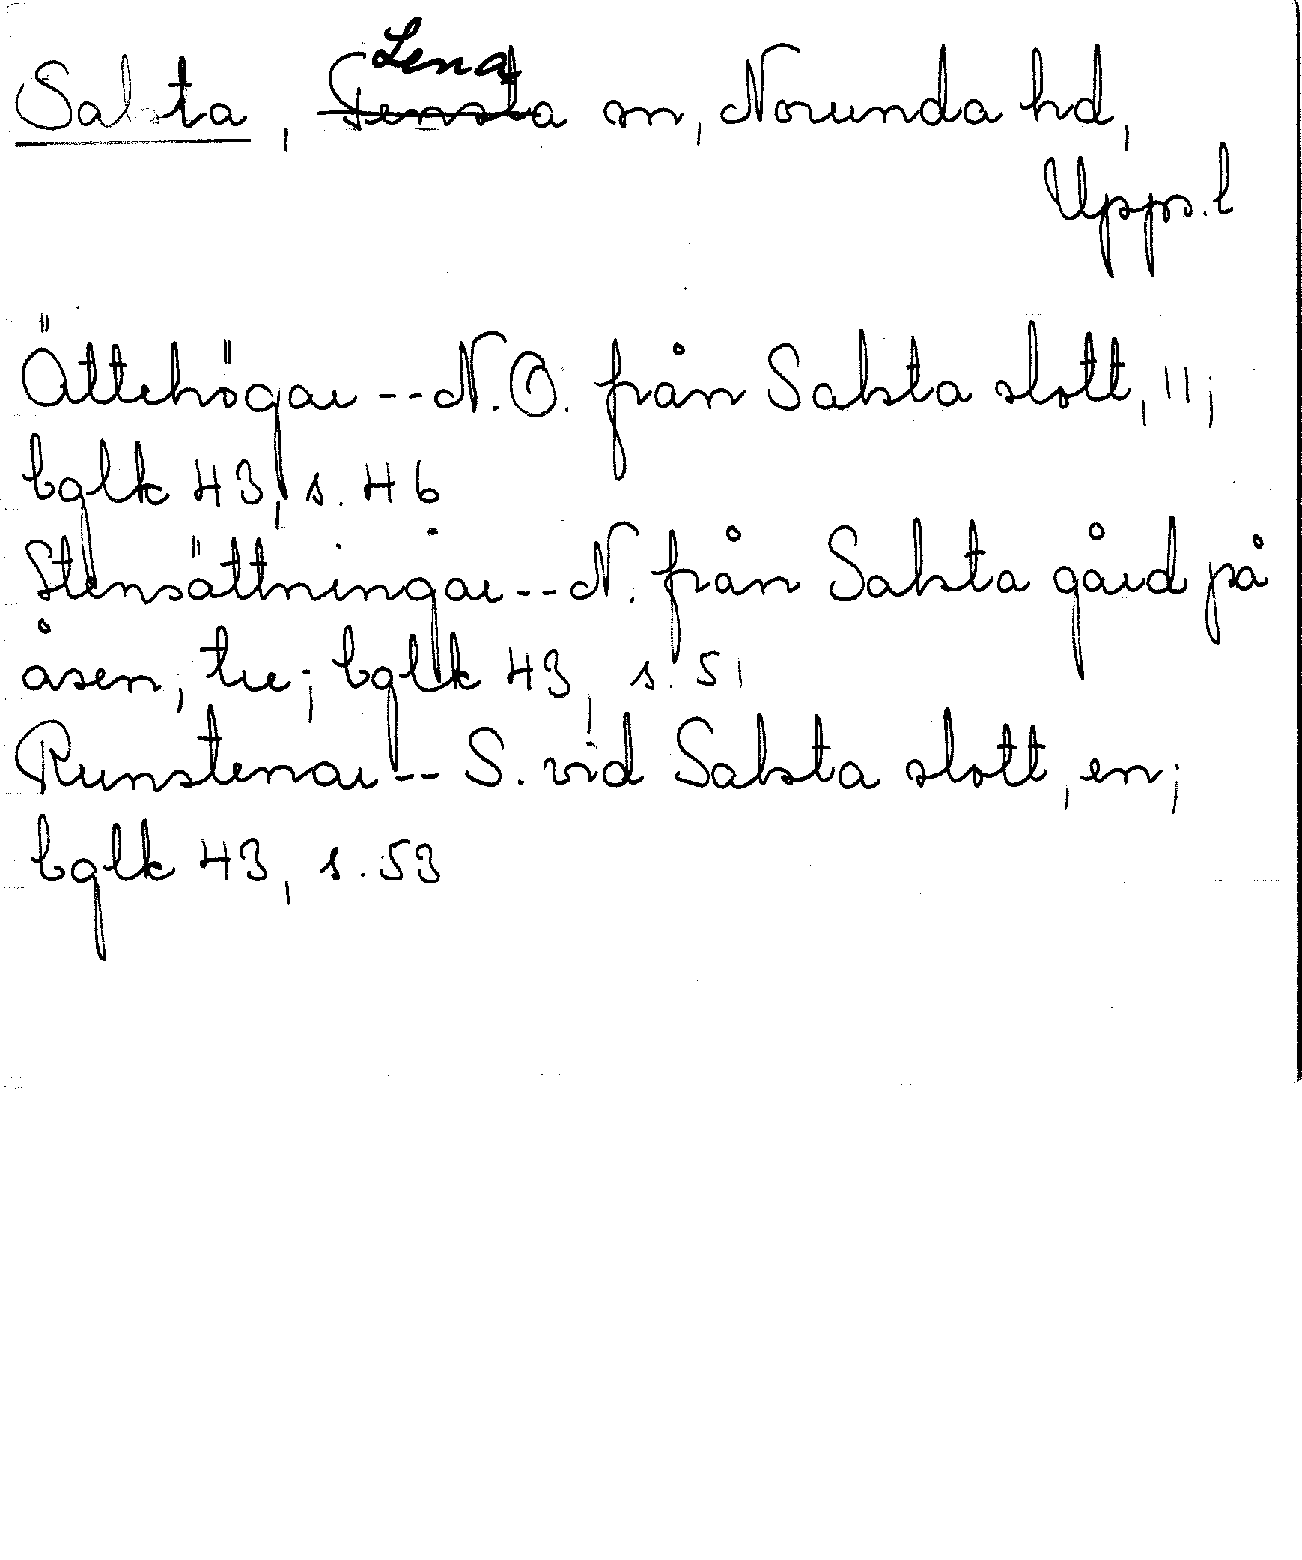 Salsta, Lena ~~Tensta~~ sn, Norunda hd,
Upps. l
Ättehögar -- N.O. från Salsta slott, 11;
bglk 43, s. 46
Stensättningar -- N. från Salsta gård på
åsen, tre; bglk 43, s. 51
Runstenar -- S. vid Salsta slott, en;
bglk 43, s. 53